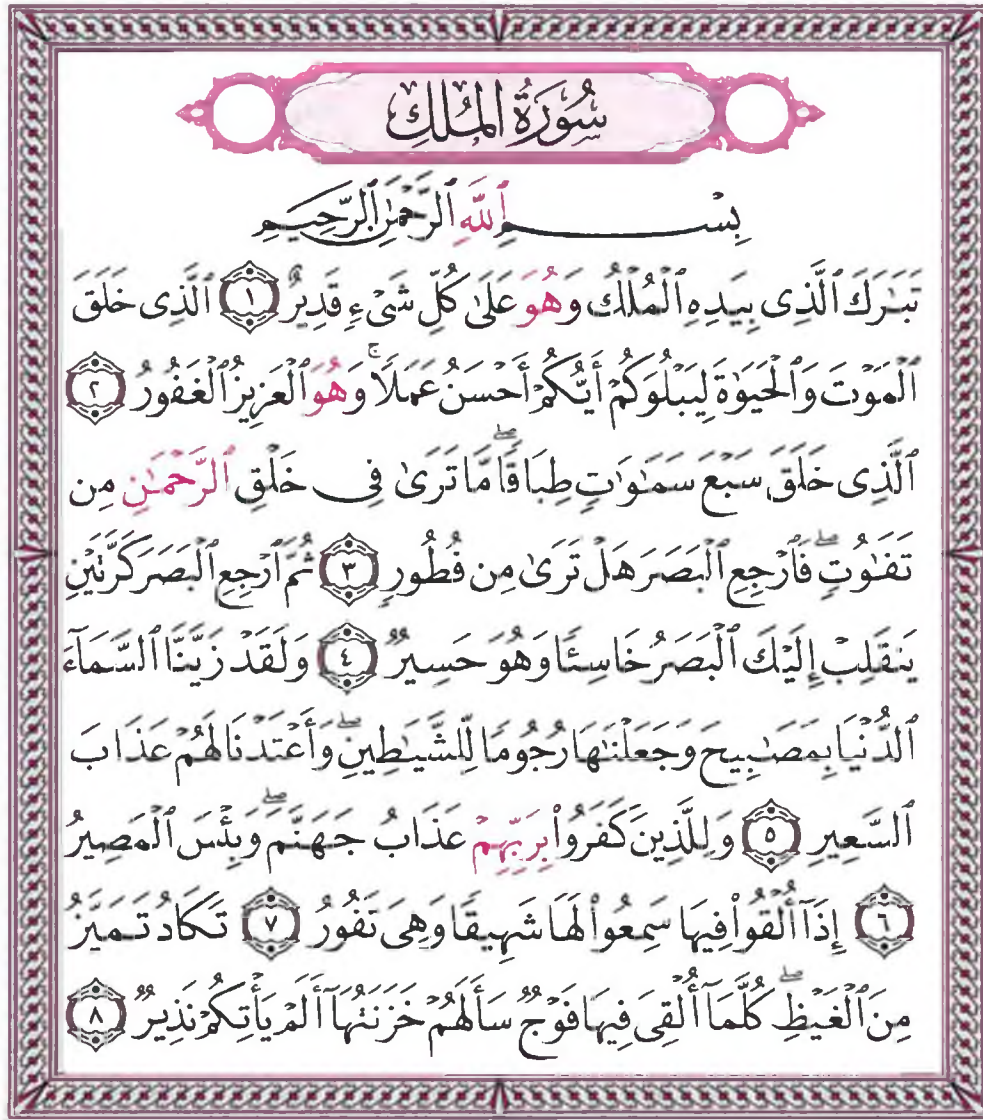 سُورَةُ المُلكِ
بِسْمِ ٱللَّهِ ٱلرَّحْمَٰنِ ٱلرَّحِيمِ
تَبَٰرَكَ ٱلَّذِى بِيَدِهِ ٱلْمُلْكُ وَهُوَ عَلَىٰ كُلِّ شَىْءٍ قَدِيرٌ ١ ٱلَّذِى خَلَقَ
ٱلْمَوْتَ وَٱلْحَيَوٰةَ لِيَبْلُوَكُمْ أَيُّكُمْ أَحْسَنُ عَمَلًا ۚ وَهُوَ ٱلْعَزِيزُ ٱلْغَفُورُ ٢
ٱلَّذِى خَلَقَ سَبْعَ سَمَٰوَٰتٍ طِبَاقًا ۖ مَّا تَرَىٰ فِى خَلْقِ ٱلرَّحْمَٰنِ مِن
تَفَٰوُتٍ ۖ فَٱرْجِعِ ٱلْبَصَرَ هَلْ تَرَىٰ مِن فُطُورٍ ٣ ثُمَّ ٱرْجِعِ ٱلْبَصَرَ كَرَّتَيْنِ
يَنقَلِبْ إِلَيْكَ ٱلْبَصَرُ خَاسِئًا وَهُوَ حَسِيرٌ ٤ وَلَقَدْ زَيَّنَّا ٱلسَّمَآءَ
ٱلدُّنْيَا بِمَصَٰبِيحَ وَجَعَلْنَٰهَا رُجُومًا لِّلشَّيَٰطِينِ ۖ وَأَعْتَدْنَا لَهُمْ عَذَابَ
ٱلسَّعِيرِ ٥ وَلِلَّذِينَ كَفَرُوا۟ بِرَبِّهِمْ عَذَابُ جَهَنَّمَ ۖ وَبِئْسَ ٱلْمَصِيرُ
٦ إِذَآ أُلْقُوا۟ فِيهَا سَمِعُوا۟ لَهَا شَهِيقًا وَهِىَ تَفُورُ ٧ تَكَادُ تَمَيَّزُ
مِنَ ٱلْغَيْظِ ۖ كُلَّمَآ أُلْقِىَ فِيهَا فَوْجٌ سَأَلَهُمْ خَزَنَتُهَآ أَلَمْ يَأْتِكُمْ نَذِيرٌ ٨